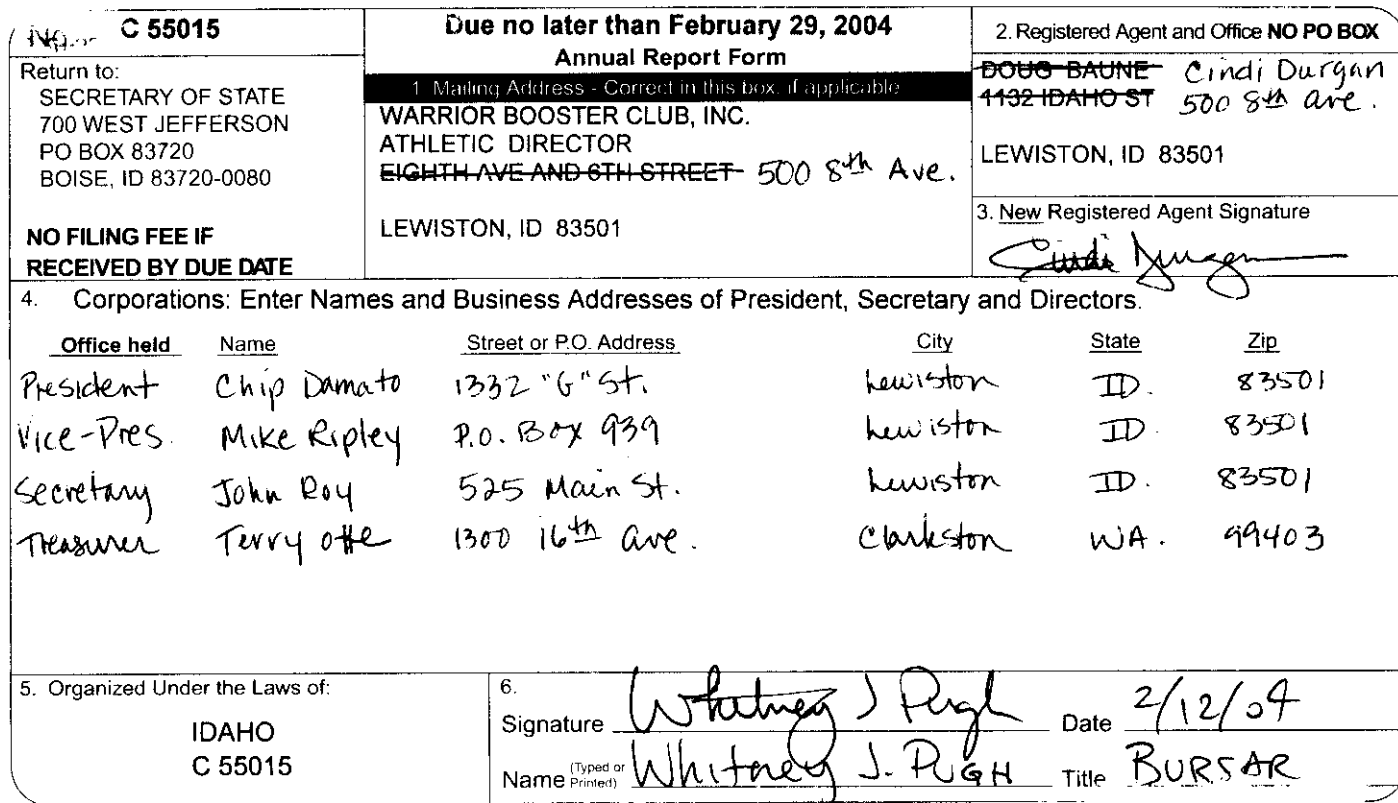 No. C 55015
Return to:
SECRETARY OF STATE
700 WEST JEFFERSON
PO BOX 83720
BOISE, ID 83720-0080
NO FILING FEE IF
RECEIVED BY DUE DATE
Due no later than February 29, 2004
Annual Report Form
1 Mailing Address - Correct in this box, if applicable
WARRIOR BOOSTER CLUB, INC.
ATHLETIC DIRECTOR
EIGHTH AVE AND 6TH STREET 500 8th Ave.
LEWISTON, ID 83501
2. Registered Agent and Office NO PO BOX
DOUG BAUNE Cindi Durgan
1132 IDAHO ST 500 8th ave.
LEWISTON, ID 83501
3. New Registered Agent Signature
Cindi Durgan
4. Corporations: Enter Names and Business Addresses of President, Secretary and Directors.
Office held Name Street or P.O. Address City State Zip
President Chip Damato 1332 "G" St. Lewiston ID. 83501
Vice-Pres. Mike Ripley P.O. Box 939 Lewiston ID. 83501
Secretary John Roy 525 Main St. Lewiston ID. 83501
Treasurer Terry Otte 1300 16th ave. Clarkston WA. 99403
5. Organized Under the Laws of:
IDAHO
C 55015
6.
Signature Whitney J Pugh Date 2/12/04
Name (Typed or Printed) Whitney J. PUGH Title BURSAR